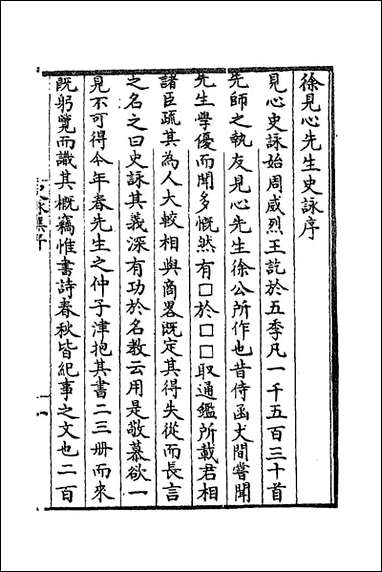 徐見心先生史詠序
見心史詠始周威烈王訖於五季凡一千五百三十首
先師之執友見心先生徐公所作也昔侍函丈間嘗聞
先生學優而聞多慨然有□於□□取通鑑所載君相
諸臣疏其為人大較相與商畧既定其得失從而長言
之名之曰史詠其義深有功於名教云用是敬慕欲一
見不可得今年春先生之仲子津抱其書二三册而來
既躬覽而識其概竊惟書詩春秋皆紀事之文也二百